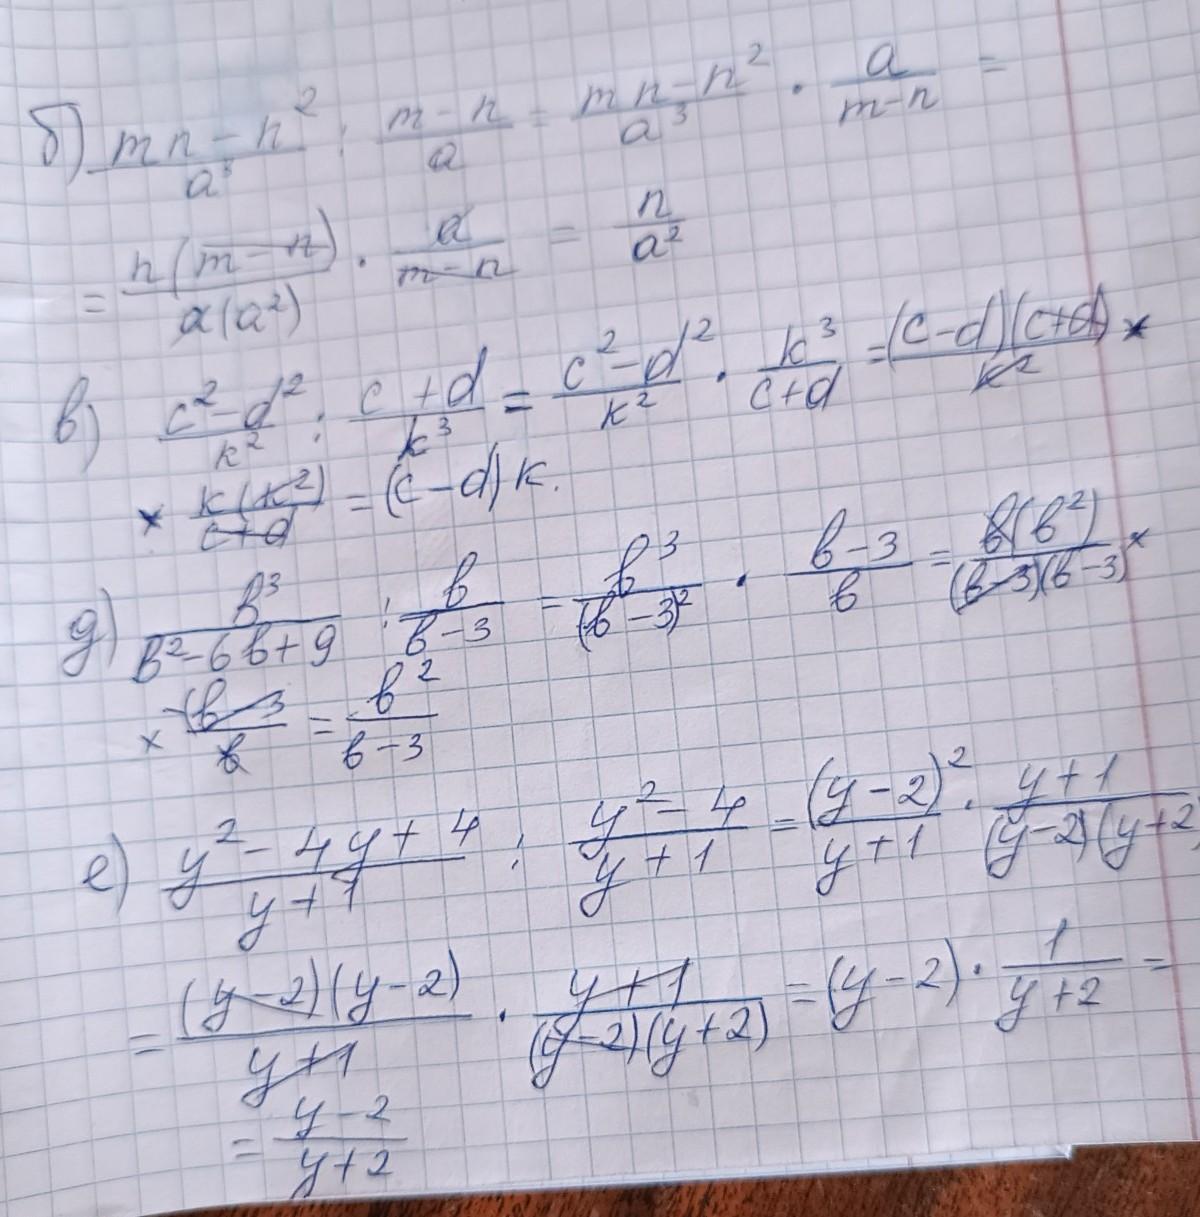 б) (mn-n²)/a³ : (m-n)/a = (mn-n²)/a³ · a/(m-n) =
= n(m-n)/a(a²) · a/(m-n) = n/a²
в) (c²-d²)/k² : (c+d)/k³ = (c²-d²)/k² · k³/(c+d) = (c-d)(c+d)/k² ×
× k(k²)/(c+d) = (c-d)k.
д) в³/(в²-6в+9) : в/(в-3) = в³/(в-3)² · (в-3)/в = в(в²)/(в-3)(в-3) ×
× (в-3)/в = в²/(в-3)
е) (y²-4y+4)/(y+1) : (y²-4)/(y+1) = (y-2)²/(y+1) · (y+1)/(y-2)(y+2)
= (y-2)(y-2)/(y+1) · (y+1)/(y-2)(y+2) = (y-2) · 1/(y+2) =
= (y-2)/(y+2)